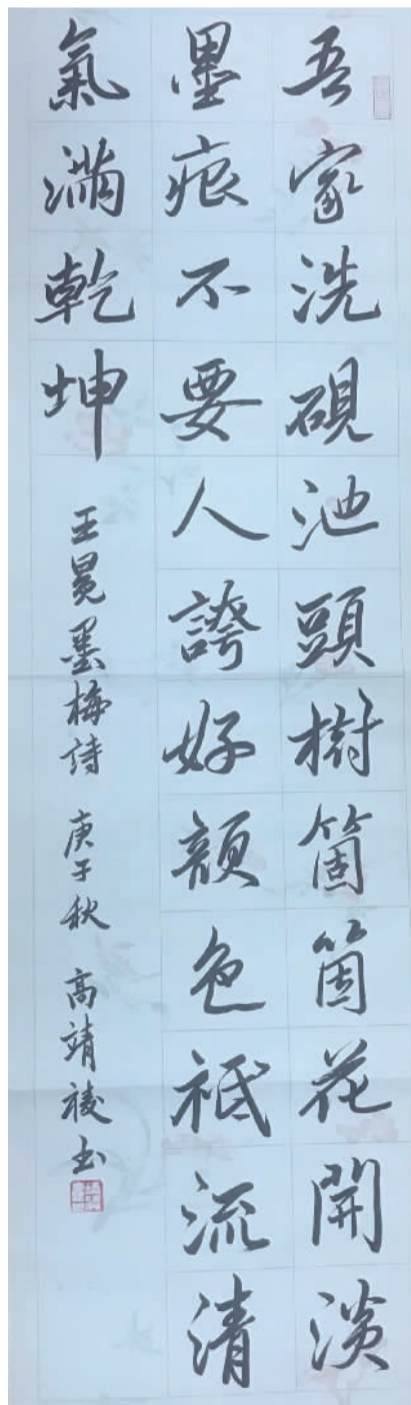 吾家洗硯池頭樹箇箇花開淡
墨痕不要人誇好顏色祗流清
氣滿乾坤
王冕墨梅詩 庚子秋 高靖稜书